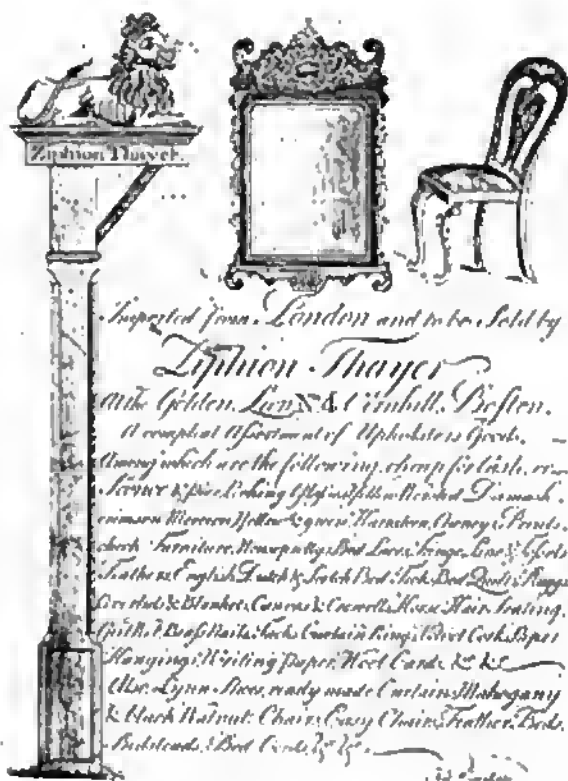 Ziphion Thayer.
Imported from London and to be Sold by
Ziphion Thayer
At the Golden Lion No 4 Cornhill, Boston.
A compleat Assortment of Upholstery Goods,
Among which are the following, cheap for Cash.
Looking Glasses Yellow Worsted Damask
crimson Moreen Yellow & green Harrateen, Cheney, Prints
check Furniture, Bed Laces, Fringe, Line & Tossels
Feathers English Dutch & Scotch Bed Tick, Bed Quilts, Ruggs
Coverlids & Blankets, Canvas & Crewells, Horse Hair Seating,
Brass Nails, Tacks Curtain Rings, Paper
Hangings, Writing paper, Wool Cards, &c &c
Also, Lynn Shoes, ready made Curtains, Mahogany
& black Walnut Chairs, Easy Chairs, Feather Beds,
Bedsteads, Bed Cords &c &c.